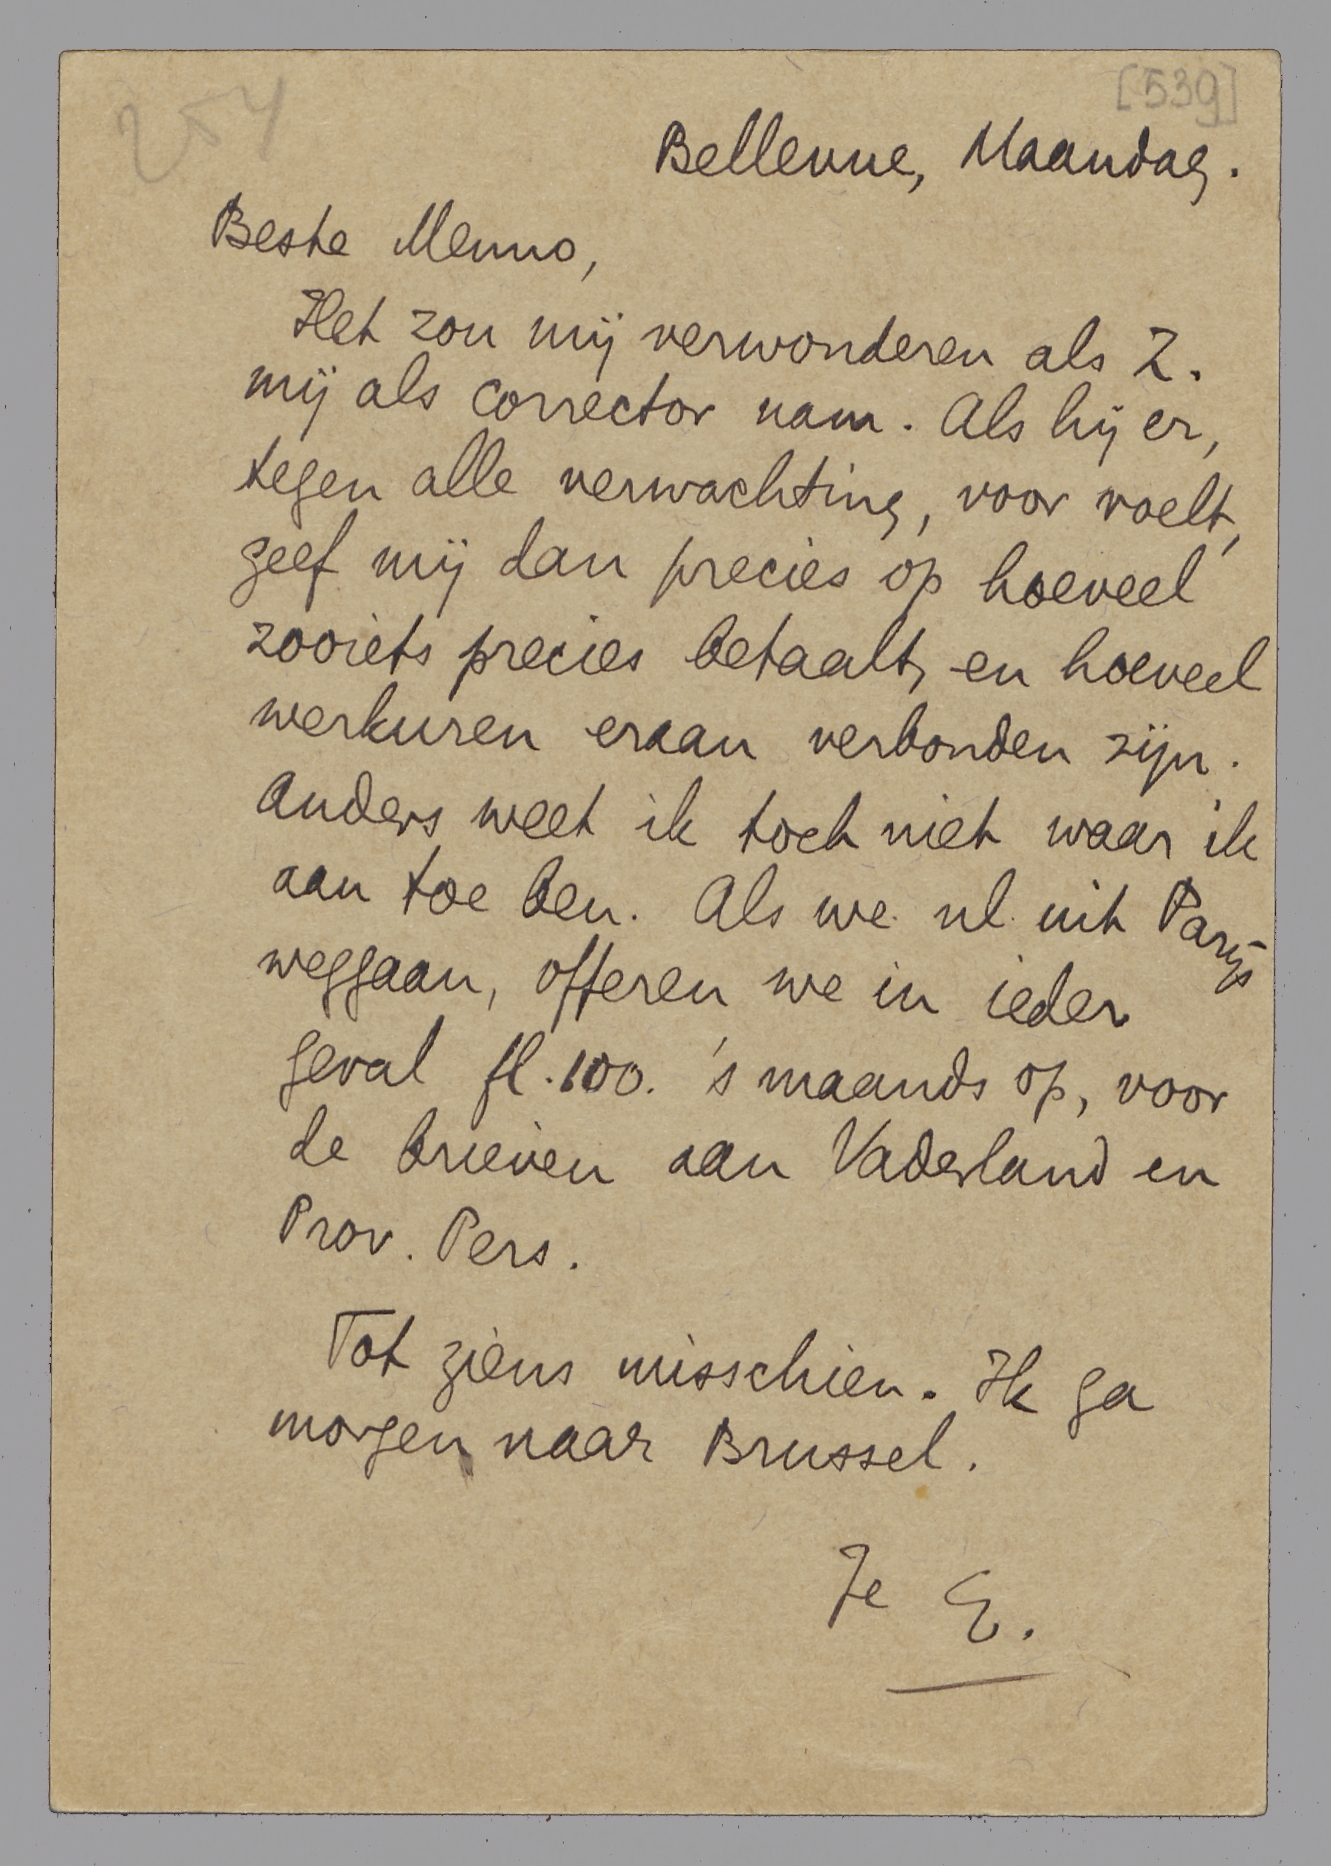 254
[539]
Bellevue, Maandag.
Beste Menno,
Het zou mij verwonderen als Z.
mij als corrector nam. Als hij er,
tegen alle verwachting, voor voelt,
geef mij dan precies op hoeveel
zooiets precies betaalt, en hoeveel
werkuren eraan verbonden zijn.
Anders weet ik toch niet waar ik
aan toe ben. Als we nl. uit Parijs
weggaan, offeren we in ieder
geval fl. 100. 's maands op, voor
de brieven aan Vaderland en
Prov. Pers.
Tot ziens misschien. Ik ga
morgen naar Brussel.
Je E.